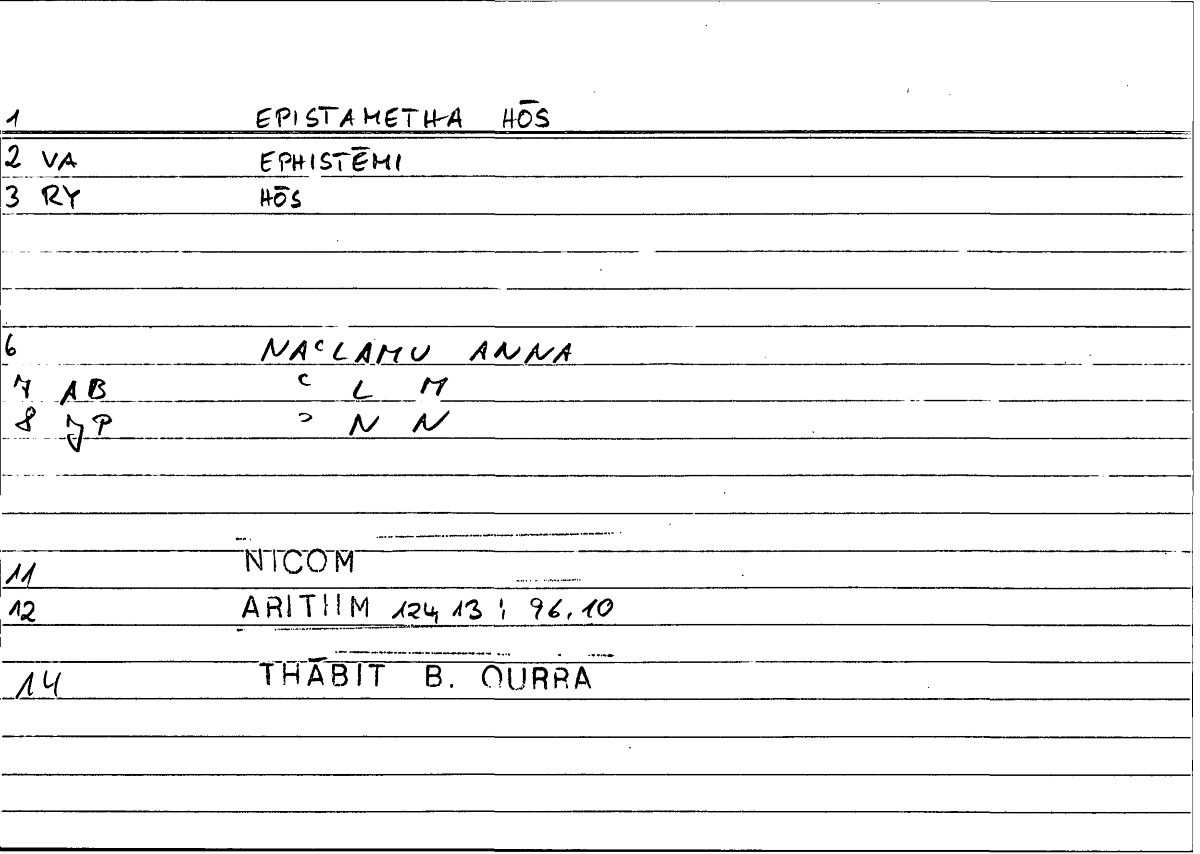 1 EPISTAMETHA HŌS
2 VA EPHISTĒMI
3 RY HŌS
6 NAʿLAMU ANNA
7 AB ʿ L M
8 JP ʾ N N
11 NICOM
12 ARITHM 124,13 ; 96.10
14 THĀBIT B. QURRA